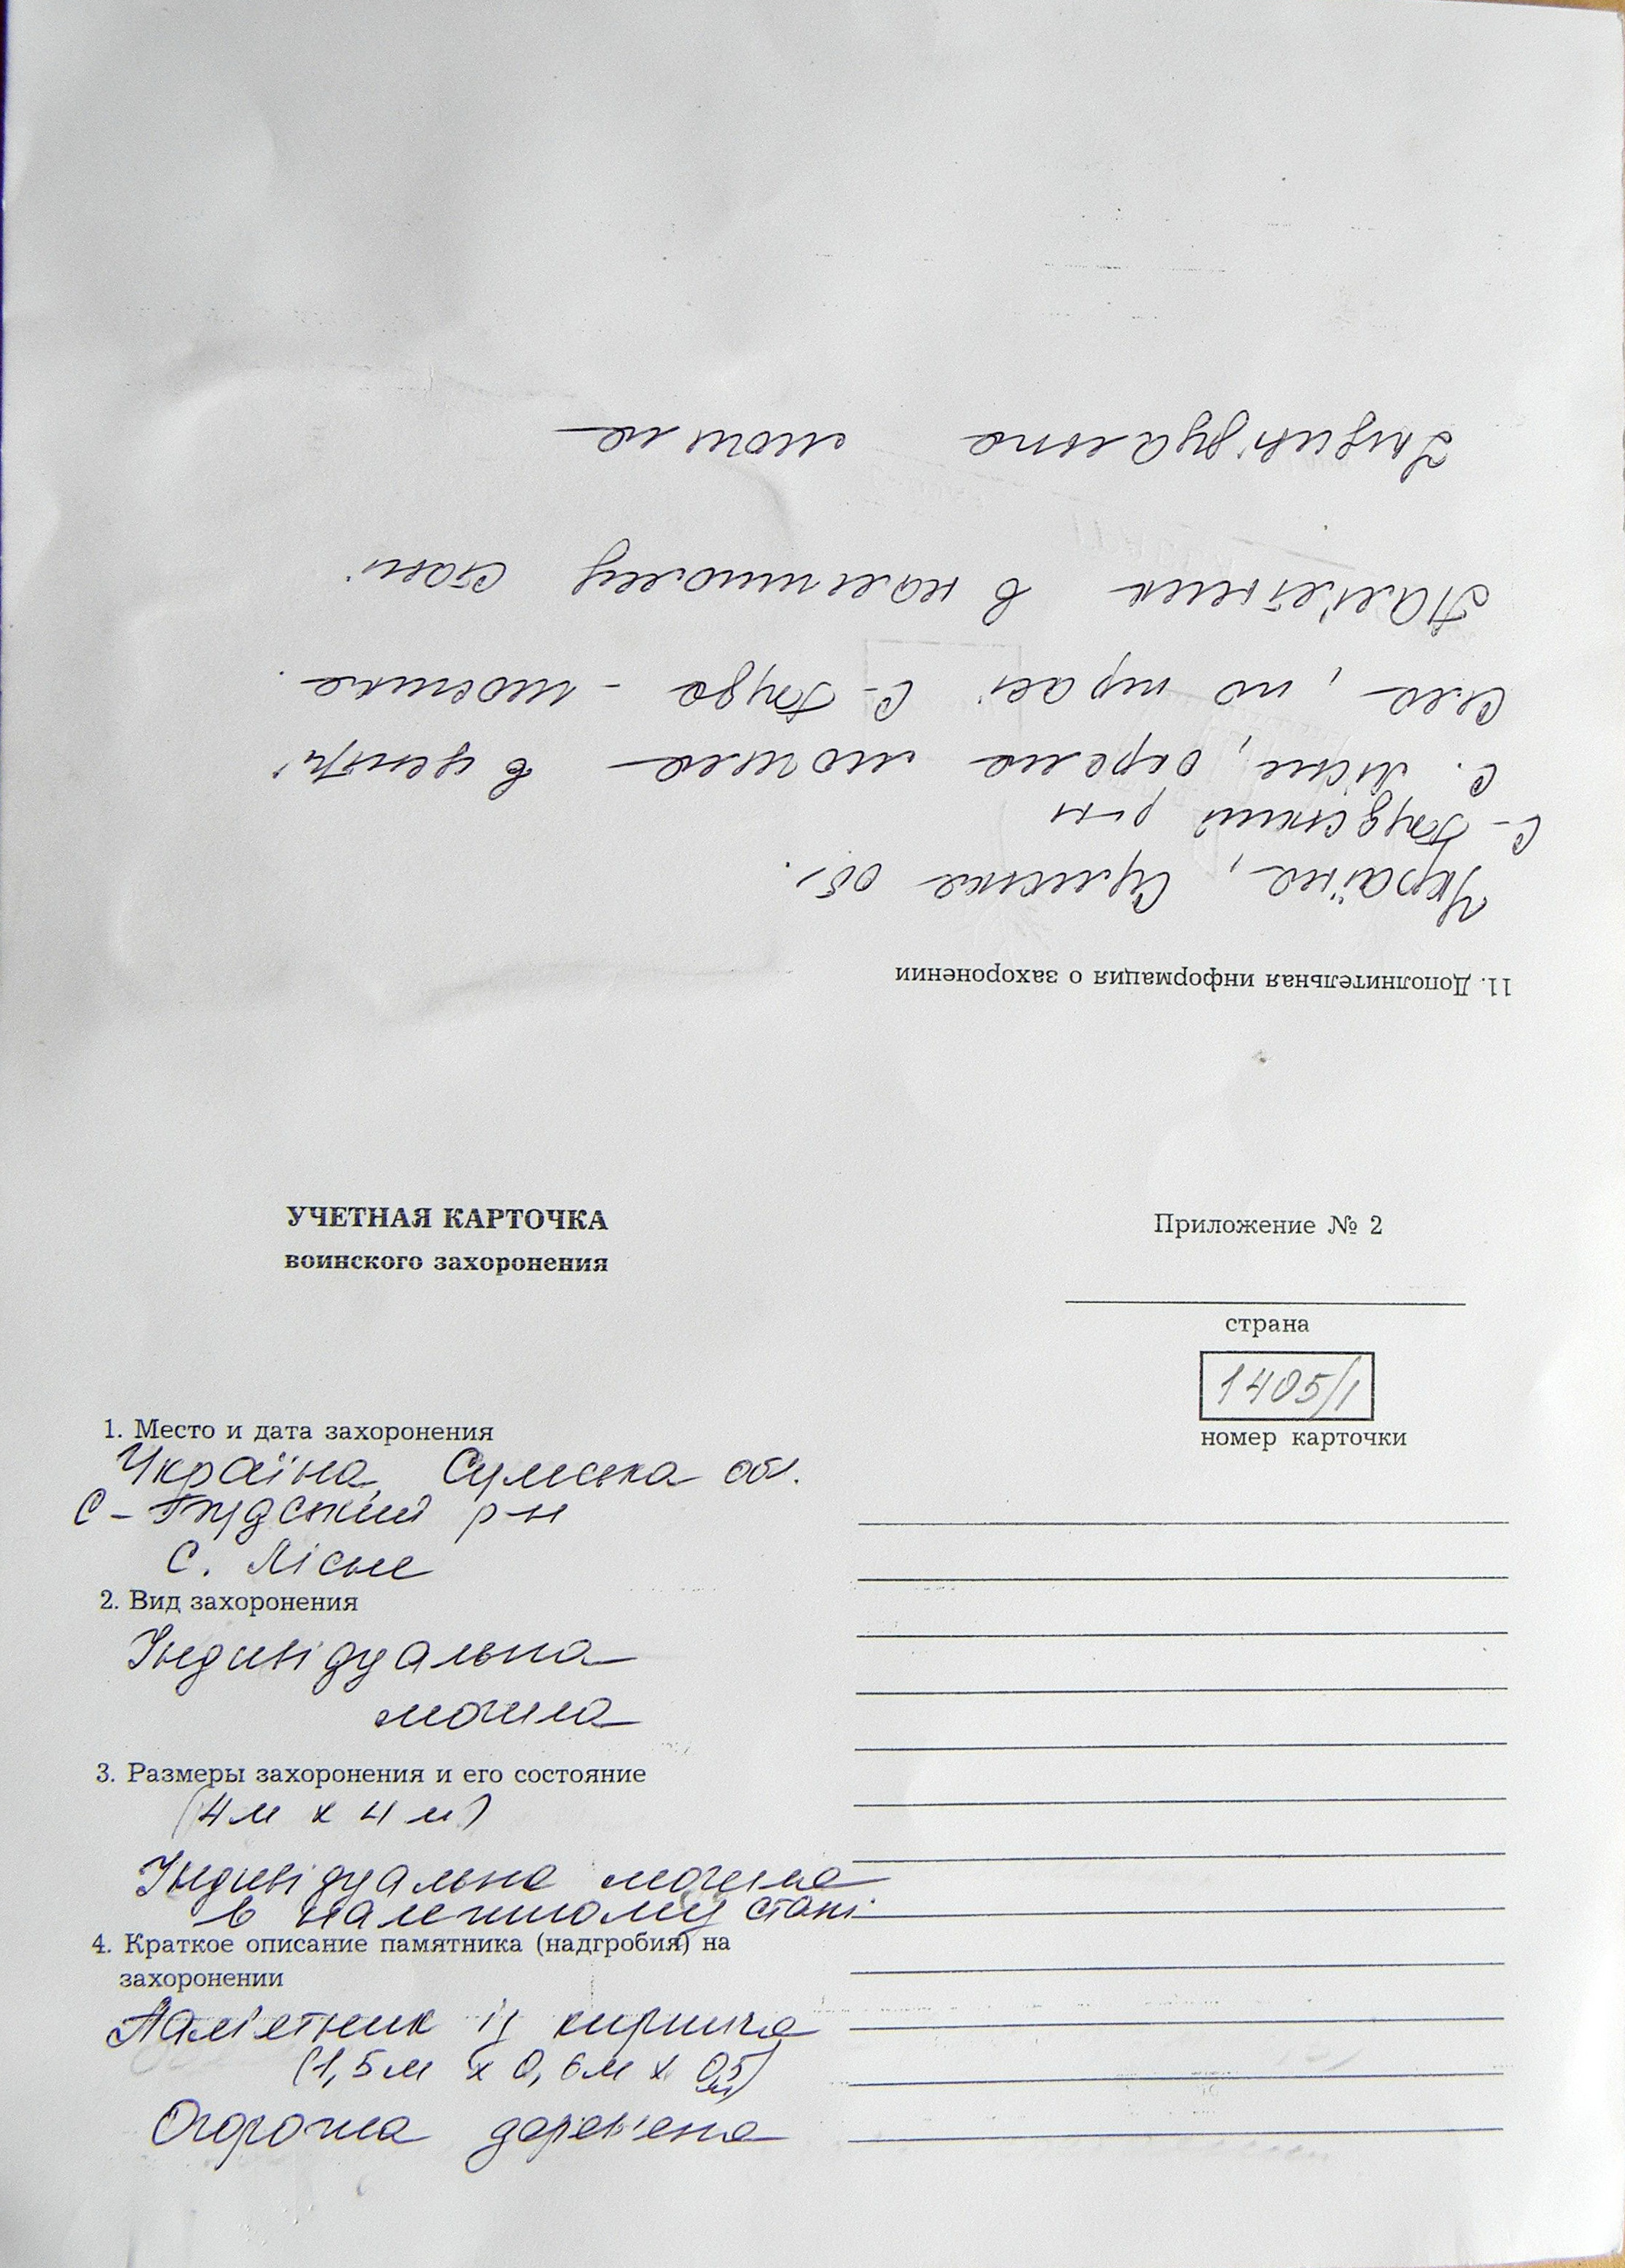 11. Дополнительная информация о захоронении
Україна, Сумська обл.
С-Будський р-н
с. Лісне, окрема могила в центрі
села, по трасі С-Буда - Шостка.
Пам'ятник в належному стані
Індивідуальна могила
УЧЕТНАЯ КАРТОЧКА
воинского захоронения
Приложение № 2
страна
1405/1
номер карточки
1. Место и дата захоронения
Україна, Сумська обл.
С-Будський р-н
с. Лісне
2. Вид захоронения
Індивідуальна
могила
3. Размеры захоронения и его состояние
(4м х 4м)
Індивідуальна могила
в належному стані
4. Краткое описание памятника (надгробия) на
захоронении
Пам'ятник із кирпича
(1,5м х 0,6м х 0,5м)
Огорожа дерев'яна